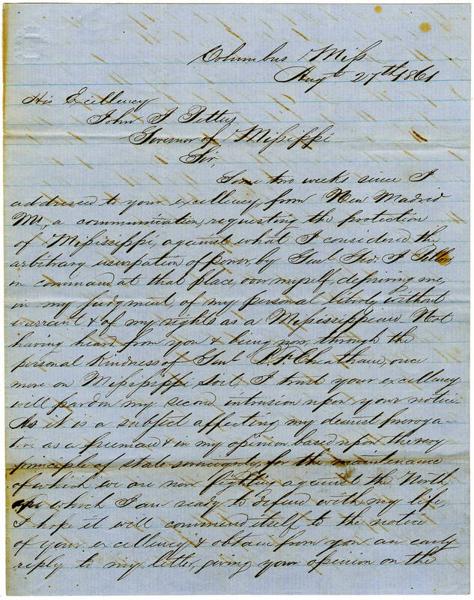 Columbus Miss
Augt 27th 1861
His Excellency
John J Pettus
Governor of Missisippi
Sir,
Some two weeks since I
addressed to your excellency from New Madrid
Mo, a communication, requesting the protection
of Missisippi, against what I considered the
arbitrary usurpation of power by Genl Geo. J Pillow
in command at that place, over myself, depriving me,
in my judgment of my personal liberty without
warrant & of my rights as a Missisippian. Not
having heard from you & being now through the
personal kindness of Genl B. F. Cheatham, once
more on Missisippi Soil, I trust your excellency
will pardon my second intrusion upon your notice
As it is a subject affecting my dearest preroga-
tion as a freeman & in my opinion based upon the very
principle of state sovereignty, for the maintenance
of which we are now fighting against the North
and which I am ready to defend with my life,
I hope it will commend itself to the notice
of your excellency & obtain from you an early
reply to my letter, giving your opinion on the